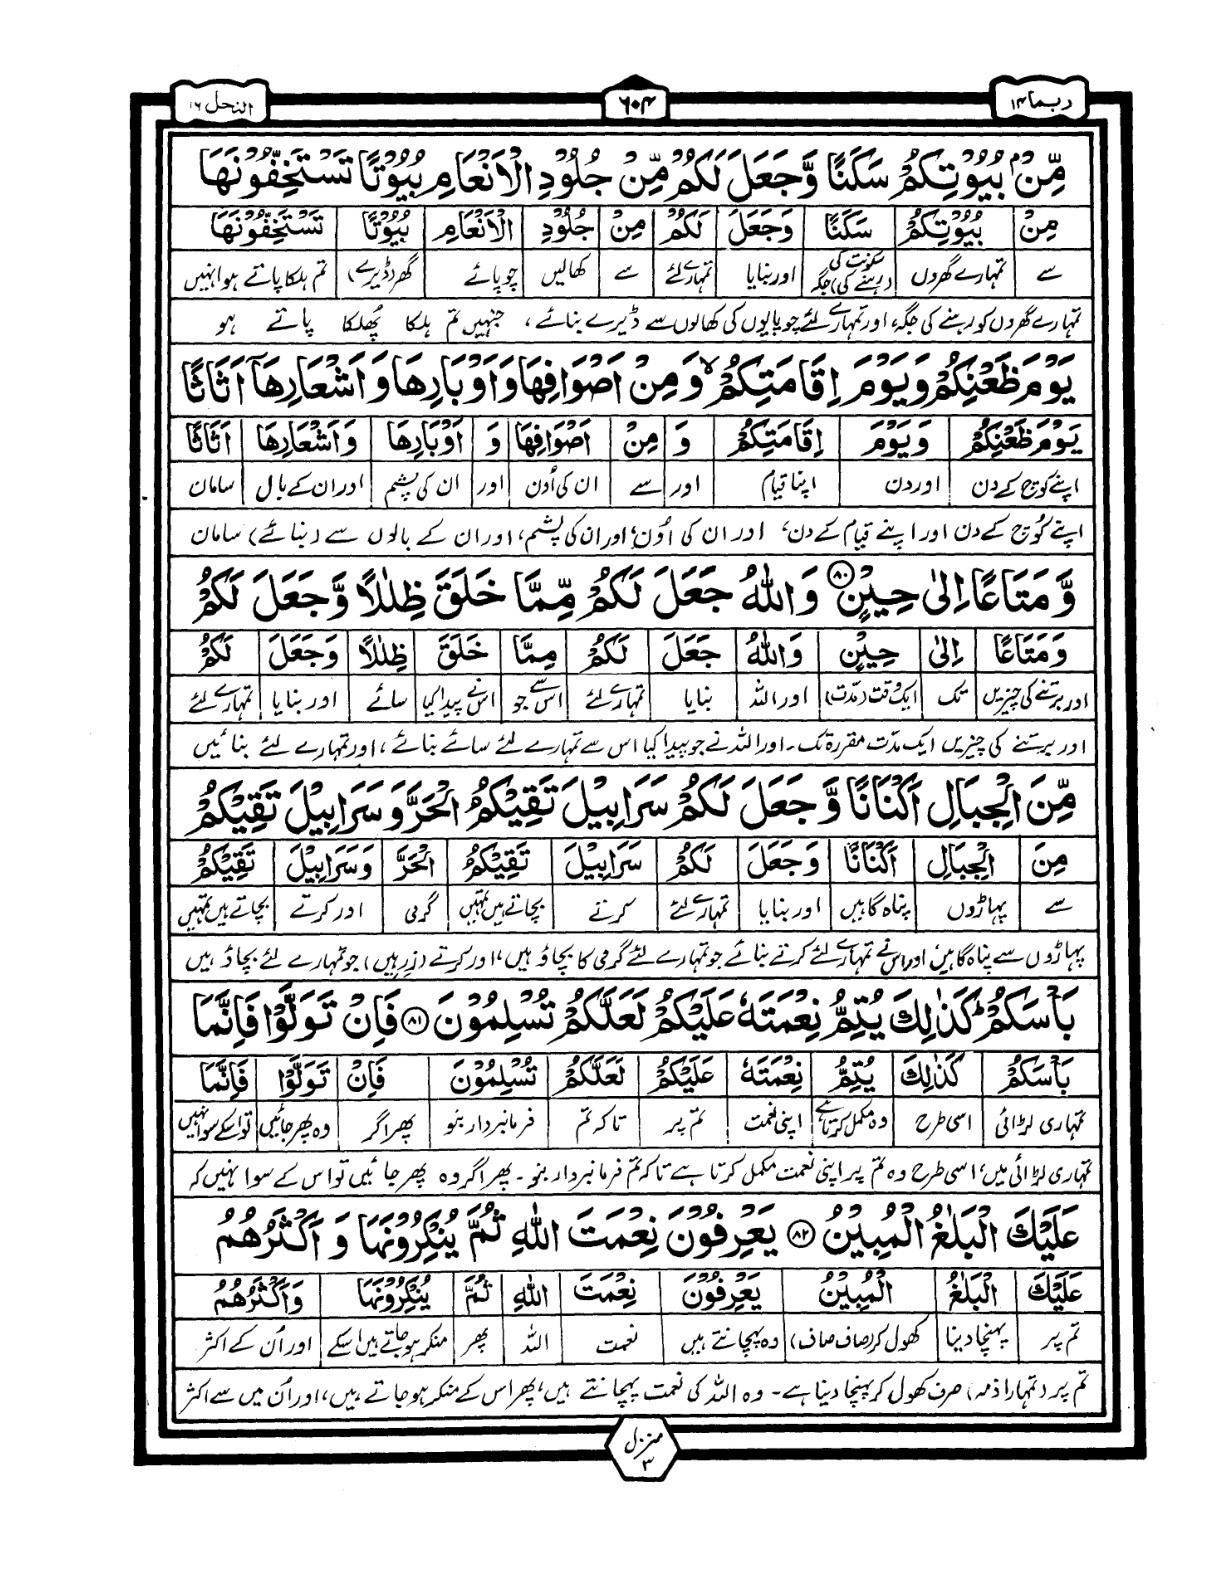 ربما ١٤
٦٠٤
النحل ١٦
مِّنْۢ بُیُوْتِكُمْ سَكَنًا وَّجَعَلَ لَكُمْ مِّنْ جُلُوْدِ الْاَنْعَامِ بُیُوْتًا تَسْتَخِفُّوْنَهَا
مِنْ بُیُوْتِكُمْ سَكَنًا وَجَعَلَ لَكُمْ مِنْ جُلُوْدِ الْاَنْعَامِ بُیُوْتًا تَسْتَخِفُّوْنَهَا
سے تمہارے گھروں سکونت کی (رہنے کی) جگہ اور بنایا تمہارے لئے سے کھالیں چوپائے گھر (ڈیرے) تم ہلکا پاتے ہو انہیں
تمہارے گھروں کو رہنے کی جگہ، اور تمہارے لئے چوپایوں کی کھالوں سے ڈیرے بنائے، جنہیں تم ہلکا پُھلکا پاتے ہو
یَوْمَ ظَعْنِكُمْ وَیَوْمَ اِقَامَتِكُمْ ۙ وَمِنْ اَصْوَافِهَا وَاَوْبَارِهَا وَاَشْعَارِهَاۤ اَثَاثًا
یَوْمَ ظَعْنِكُمْ وَیَوْمَ اِقَامَتِكُمْ وَ مِنْ اَصْوَافِهَا وَ اَوْبَارِهَا وَاَشْعَارِهَا اَثَاثًا
اپنے کوچ کے دن اور دن اپنا قیام اور سے ان کی اُون اور ان کی پشم اور ان کے بال سامان
اپنے کُوچ کے دن اور اپنے قیام کے دن، اور ان کی اُون، اور ان کی پشم، اور ان کے بالوں سے (بنائے) سامان
وَّمَتَاعًا اِلٰی حِیْنٍ ۝٨٠ وَاللّٰهُ جَعَلَ لَكُمْ مِّمَّا خَلَقَ ظِلٰلًا وَّجَعَلَ لَكُمْ
وَمَتَاعًا اِلٰی حِیْنٍ وَاللّٰهُ جَعَلَ لَكُمْ مِمَّا خَلَقَ ظِلٰلًا وَجَعَلَ لَكُمْ
اور برتنے کی چیزیں تک ایک وقت (مدّت) اور اللہ بنایا تمہارے لئے اس سے جو اس نے پیدا کیا سائے اور بنایا تمہارے لئے
اور برتنے کی چیزیں ایک مدّت مقررہ تک۔ اور اللہ نے جو پیدا کیا اس سے تمہارے لئے سائے بنائے، اور تمہارے لئے بنائیں
مِّنَ الْجِبَالِ اَكْنَانًا وَّجَعَلَ لَكُمْ سَرَابِیْلَ تَقِیْكُمُ الْحَرَّ وَسَرَابِیْلَ تَقِیْكُمْ
مِنَ الْجِبَالِ اَكْنَانًا وَجَعَلَ لَكُمْ سَرَابِیْلَ تَقِیْكُمُ الْحَرَّ وَسَرَابِیْلَ تَقِیْكُمْ
سے پہاڑوں پناہ گاہیں اور بنایا تمہارے لئے کرتے بچاتے ہیں تمہیں گرمی اور کرتے بچاتے ہیں تمہیں
پہاڑوں سے پناہ گاہیں، اور اس نے تمہارے لئے کرتے بنائے جو تمہارے لئے گرمی کا بچاؤ ہیں، اور کرتے (زرہیں) جو تمہارے لئے بچاؤ ہیں
بَاْسَكُمْ ؕ كَذٰلِكَ یُتِمُّ نِعْمَتَهٗ عَلَیْكُمْ لَعَلَّكُمْ تُسْلِمُوْنَ ۝٨١ فَاِنْ تَوَلَّوْا فَاِنَّمَا
بَاْسَكُمْ كَذٰلِكَ یُتِمُّ نِعْمَتَهٗ عَلَیْكُمْ لَعَلَّكُمْ تُسْلِمُوْنَ فَاِنْ تَوَلَّوْا فَاِنَّمَا
تمہاری لڑائی اسی طرح وہ مکمل کرتا ہے اپنی نعمت تم پر تاکہ تم فرمانبردار بنو پھر اگر وہ پھر جائیں تو اسکے سوا نہیں
تمہاری لڑائی میں، اسی طرح وہ تم پر اپنی نعمت مکمل کرتا ہے تاکہ تم فرمانبردار بنو۔ پھر اگر وہ پھر جائیں تو اس کے سوا نہیں کہ
عَلَیْكَ الْبَلٰغُ الْمُبِیْنُ ۝٨٢ یَعْرِفُوْنَ نِعْمَتَ اللّٰهِ ثُمَّ یُنْكِرُوْنَهَا وَاَكْثَرُهُمُ
عَلَیْكَ الْبَلٰغُ الْمُبِیْنُ یَعْرِفُوْنَ نِعْمَتَ اللّٰهِ ثُمَّ یُنْكِرُوْنَهَا وَاَكْثَرُهُمُ
تم پر پہنچا دینا کھول کر (صاف صاف) وہ پہچانتے ہیں نعمت اللہ پھر منکر ہو جاتے ہیں اسکے اور اُن کے اکثر
تم پر (تمہارا ذمہ) صرف کھول کر پہنچا دینا ہے۔ وہ اللہ کی نعمت پہچانتے ہیں، پھر اس کے منکر ہو جاتے ہیں، اور اُن میں سے اکثر
منزل
٣